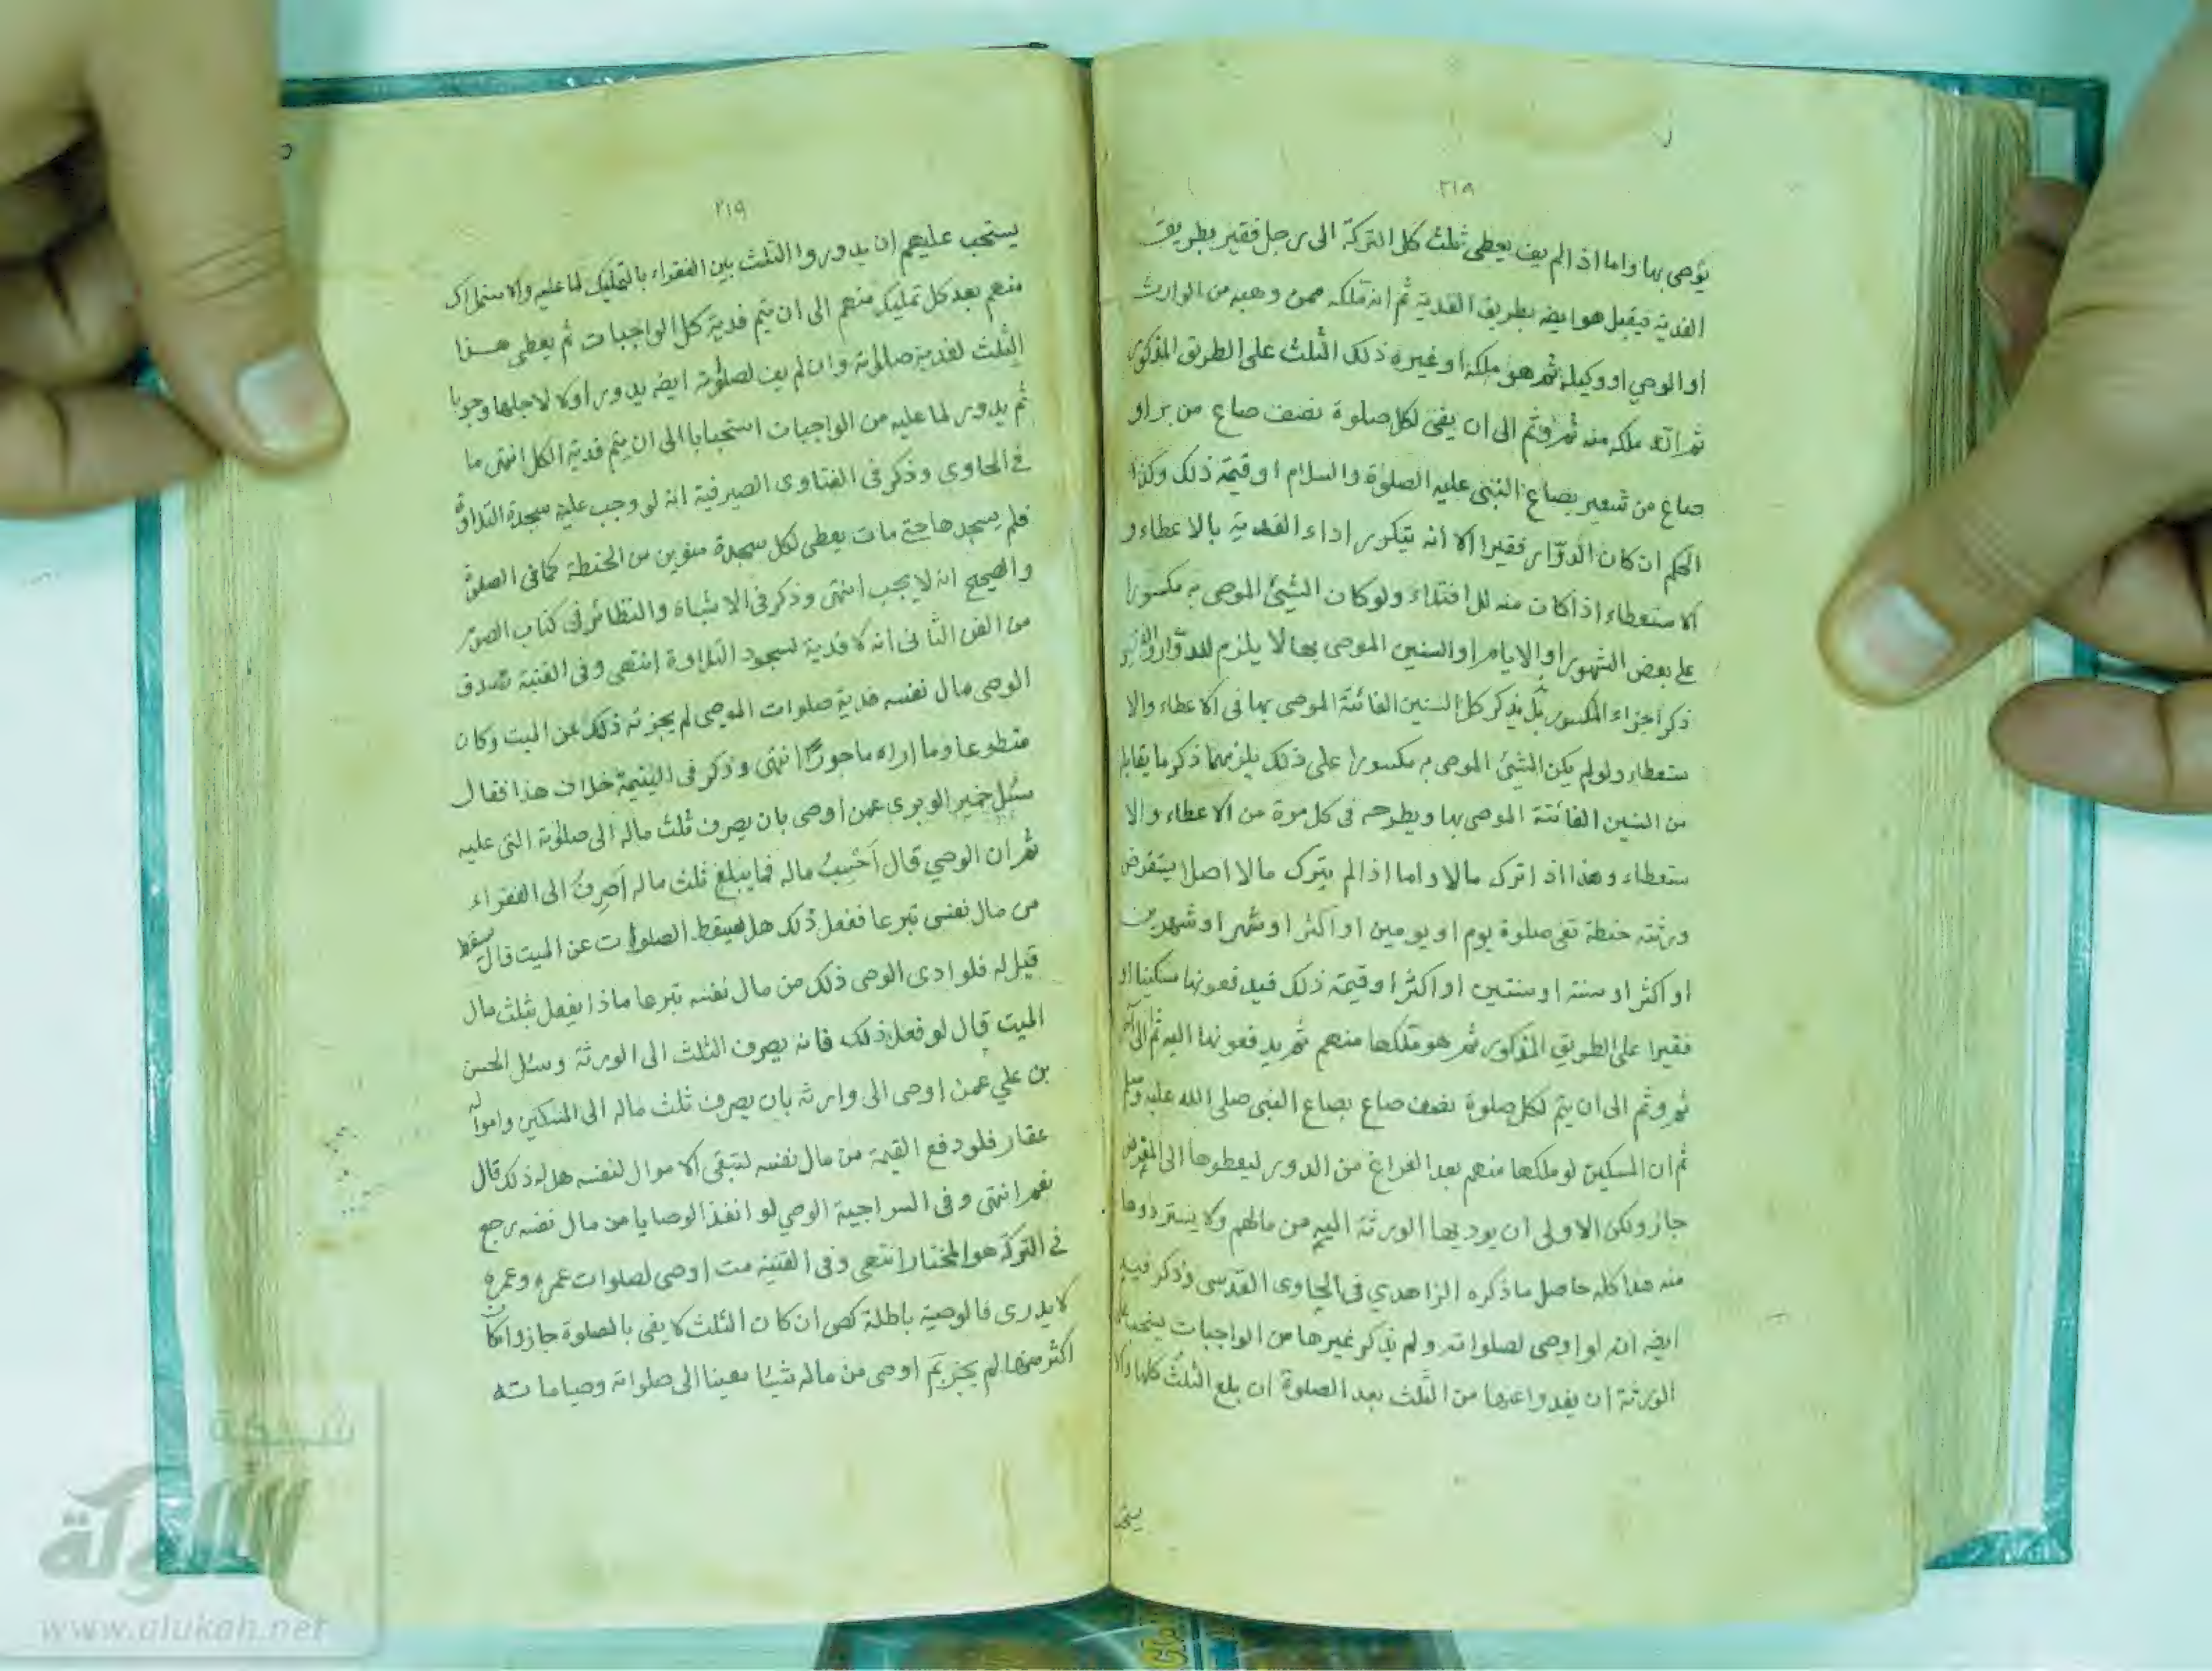 ٢١٩
يؤصى بها واما اذا لم يف يعطى ثلث كل التركة الى رجل فقير بطريق
الفدية فيقبل هو ايضه بطريق الفدية ثم انه تملكه ممن وهبه من الوارث
او الوصي او وكيله ثم هو ملكه او غيره ذلك الثلث على الطريق المذكور
ثم انه ملكه منه ثم وثم الى ان يفى لكل صلوة نصف صاع من بر او
صاع من شعير بصاع النبى عليه الصلوة والسلام او قيمة ذلك وكذا
الحكم ان كان الدوّار فقيرا الا انه يتكرر اداء الفدية بالاعطاء و
الاستعطاء اذا كان منه للافتداء ولو كان الشيئ الموصى به مكسورا
على بعض الشهور او الايام او السنين الموصى بها لا يلزم للدوّار
ذكر اجزاء المكسور بل يذكر كل السنين الفائتة الموصى بها فى الاعطاء والا
ستعطاء ولو لم يكن الشيئ الموصى به مكسورا على ذلك يلزمها ذكر ما يقابله
من السنين الفائتة الموصى بها ويطرحه فى كل مرة من الاعطاء والا
ستعطاء وهذا اذا ترك مالا واما اذا لم يترك مالا اصلا يستقرض
ورثته حنطة تفى صلوة يوم او يومين او اكثر او شهر او شهرين
او اكثر او سنة او سنتين او اكثر او قيمة ذلك فيدفعونها مسكينا او
فقيرا على الطريق المذكور ثم هو تملكها منهم ثم يدفعونها اليه ثم الى آخر
ثم وثم الى ان يتم لكل صلوة نصف صاع بصاع النبى صلى الله عليه وسلم
ثم ان المسكين لو ملكها منهم بعد الفراغ من الدور ليعطوها الى المقرض
جاز ولكن الاولى ان يوديها الورثة اليه من مالهم ولا يستردوها
منه هذا كله حاصل ما ذكره الزاهدي فى الحاوى القدسى وذكر فيه
ايضه انه لو اوصى لصلواته ولم يذكر غيرها من الواجبات يستحب
الورثة ان يفدوا عنها من الثلث بعد الصلوة ان بلغ الثلث كلها والا
يستحب
٢١٩
يستحب عليهم ان يدوروا الثلث بين الفقراء بالتمليك لما عليه والاستملاك
منهم بعد كل تمليك منهم الى ان يتم فدية كل الواجبات ثم يعطى هذا
الثلث لفدية صلوته وان لم يف لصلوته ايضه يدور اولا لاجلها وجوبا
ثم يدور لما عليه من الواجبات استحبابا الى ان يتم فدية الكل انتهى ما
فى الحاوى وذكر فى الفتاوى الصيرفية انه لو وجب عليه سجدة التلاوة
فلم يسجدها حتى مات يعطى لكل سجدة منوين من الحنطة كما فى الصلوة
والصحيح انه لا يجب انتهى وذكر فى الاشباه والنظائر فى كتاب الصوم
من الفن الثانى انه لا فدية لسجود التلاوة انتهى وفى القنية تصدق
الوصى مال نفسه فدية صلوات الموصى لم يجزئه ذلك عن الميت وكان
متطوعا وما اراه ماجورًا انتهى وذكر فى اليتيمة خلاف هذا فقال
سئل خمير الوبرى عمن اوصى بان يصرف ثلث ماله الى صلوته التى عليه
ثم ان الوصي قال اَحْسِبُ ماله فما يبلغ ثلث ماله اَصرِفُ الى الفقراء
من مال نفسى تبرعا ففعل ذلك هل يسقط الصلوات عن الميت قال يسقط
قيل له فلو ادى الوصى ذلك من مال نفسه تبرعا ماذا يفعل بثلث مال
الميت قال لو فعل ذلك فانه يصرف الثلث الى الورثة وسئل الحسن
بن علي عمن اوصى الى وارثه بان يصرف ثلث ماله الى المسكين وامواله
عقار فلو دفع القيمة من مال نفسه لتبقى الاموال لنفسه هل له ذلك قال
نعم انتهى وفى السراجية الوصي لو انفذ الوصايا من مال نفسه رجع
فى التركة هو المختار انتهى وفى القنية مت اوصى لصلوات عمره وعمره
لا يدرى فالوصية باطلة كص ان كان الثلث لا يفى بالصلوة جاز وان كان
اكثر منها لم يجز بَم اوصى من ماله شيئا معينا الى صلواته وصياماته
شبكة
الألوكة
www.alukah.net